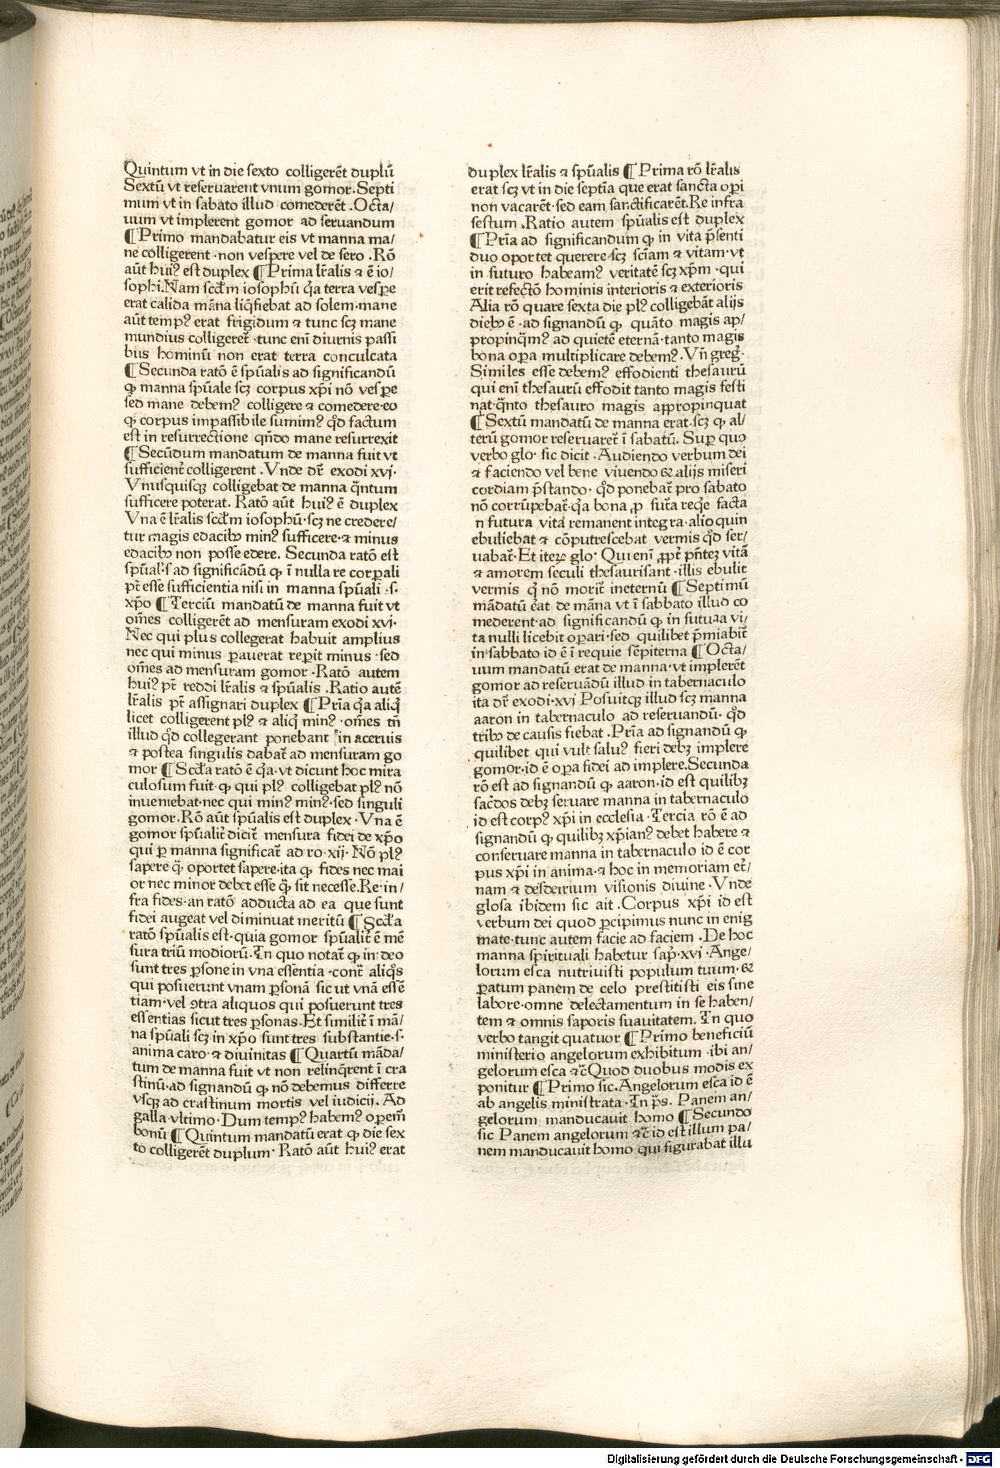 Quintum vt in die sexto colligerēt duplū
Sextū vt reseruarent vnum gomor. Septi
mum vt in sabato illud comederēt. Octa/
uum vt implerent gomor ad seruandum
¶ Primo mandabatur eis vt manna ma/
ne colligerent · non vespere vel de sero . Rō
aūt huiꝰ est duplex ¶ Prima lr̄alis ⁊ ē io/
sophi. Nam scd̄m iosophū q̄a terra vesꝑe
erat calida māna liq̄fiebat ad solem · mane
aūt tempꝰ erat frigidum ⁊ tunc scꝫ mane
mundius colligeret̄ · tunc eni diurnis passi
bus hominū non erat terra conculcata
¶ Secunda ratō ē spūalis ad significandū
ꝙ manna spūale scꝫ corpus xp̄i nō vesꝑe
sed mane debemꝰ colligere ⁊ comedere · eo
ꝙ corpus impassibile sumimꝰ qd̄ factum
est in resurrectione qn̄do mane resurrexit
¶ Secūdum mandatum de manna fuit vt
sufficient̄ colligerent . Vnde dr̄ exodi xvj ·
Vnusquisqꝫ colligebat de manna q̄ntum
sufficere poterat. Ratō aūt huiꝰ ē duplex
Vna ē lr̄alis scd̄m iosophū · scꝫ ne credere/
tur magis edacibꝰ minꝰ sufficere · ⁊ minus
edacibꝰ non posse edere. Secunda ratō est
spūalis ad significādū ꝙ ī nulla re corꝑali
pt̄ esse sufficientia nisi in manna spūali · s ·
xp̄o ¶ Terciū mandatū de manna fuit vt
om̄es colligerēt ad mensuram exodi xvj ·
Nec qui plus collegerat habuit amplius
nec qui minus ꝑauerat reꝑit minus · sed
om̄es ad mensuram gomor . Ratō autem
huiꝰ pt̄ reddi lr̄alis ⁊ spūalis . Ratio autē
lr̄alis pt̄ assignari duplex ¶ Pr̄ia q̄a aliq̄
licet colligerent plꝰ ⁊ aliq̄ minꝰ · om̄es tn̄
illud qd̄ collegerant ponebant in aceruis
⁊ postea singulis dabat̄ ad mensuram go
mor ¶ Scd̄a ratō ē q̄a · vt dicunt hoc mira
culosum fuit · ꝙ qui plꝰ colligebat plꝰ nō
inueniebat · nec qui minꝰ minꝰ · sed singuli
gomor. Rō aūt spūalis est duplex · Vna ē
gomor spūalit̄ dicit̄ mensura fidei de xp̄o
qui ꝑ manna significat̄ ad ro · xij · Nō plꝰ
sapere q̄ꝫ oportet sapere · ita ꝙ fides nec mai
or nec minor debet esse q̄ꝫ sit necesse. Re · in/
fra fides · an ratō adducta ad ea que sunt
fidei augeat vel diminuat meritū ¶ Scd̄a
ratō spūalis est · quia gomor spūalit̄ ē mē
sura triū modiorū · In quo notat̄ ꝙ in deo
sunt tres ꝑsone in vna essentia · cont̄ aliq̄s
qui posuerunt vnam ꝑsonā sic ut vnā essē
tiam · vel ꝯtra aliquos qui posuerunt tres
essentias sicut tres ꝑsonas. Et similit̄ ī mā/
na spūali scꝫ in xp̄o sunt tres substantie · s ·
anima caro · ⁊ diuinitas ¶ Quartū māda/
tum de manna fuit vt non relinq̄rent ī cra
stinū · ad signandū ꝙ nō debemus differre
vsqꝫ ad crastinum mortis vel iudicij. Ad
galla vltimo · Dum tempꝰ habemꝰ oꝑem̄
bonū ¶ Quintum mandatū erat ꝙ die sex
to colligerēt duplum · Ratō aūt huiꝰ erat
duplex lr̄alis ⁊ spūalis ¶ Prima rō lr̄alis
erat scꝫ vt in die septīa que erat sancta oꝑi
non vacarēt · sed eam sanctificarēt. Re infra
festum . Ratio autem spūalis est duplex
¶ Pr̄ia ad significandum ꝙ in vita p̄senti
duo oportet querere · scꝫ sciam ⁊ vitam · vt
in futuro habeamꝰ veritatē scꝫ xp̄m · qui
erit refectō hominis interioris ⁊ exterioris
Alia rō quare sexta die plꝰ colligebāt alijs
diebꝰ ē · ad signandū ꝙ quāto magis ap/
propinq̄mꝰ ad quietē eternā · tanto magis
bona oꝑa multiplicare debemꝰ. Vn̄ greḡ ·
Similes esse debemꝰ effodienti thesaurū
qui eni thesaurū effodit tanto magis festi
nat · q̄nto thesauro magis appropinquat
¶ Sextū mandatū de manna erat · scꝫ ꝙ al/
terū gomor reseruaret̄ ī sabatū. Suꝑ quo
verbo glo · sic dicit . Audiendo verbum dei
⁊ faciendo vel bene viuendo ⁊ alijs miseri
cordiam p̄stando · qd̄ ponebat̄ pro sabato
nō corrūpebat̄ · q̄a bona ꝓ fut̄a req̄e facta
n futura vita remanent integra · alioquin
ebuliebat ⁊ cōputrescebat vermis qd̄ ser/
uabat̄ · Et iteꝝ glo · Qui eni ꝓpt̄ pn̄teꝫ vitā
⁊ amorem seculi thesaurisant · illis ebulit
vermis q̄ nō morit̄ ineternū ¶ Septimū
mādatū erat de māna vt ī sabbato illud co
mederent · ad significandū ꝙ in futura vi/
ta nulli licebit oꝑari · sed quilibet p̄miabit̄
in sabbato id ē ī requie sēpiterna ¶ Octa/
uum mandatū erat de manna · vt implerēt
gomor ad reseruādū illud in tabernaculo
ita dr̄ exodi · xvj Posuitqꝫ illud scꝫ manna
aaron in tabernaculo ad reseruandū · qd̄
tribꝰ de causis fiebat . Pr̄ia ad signandū ꝙ
quilibet qui vult saluꝰ fieri debꝫ implere
gomor · id ē oꝑa fidei ad implere. Secunda
rō est ad signandū ꝙ aaron · id est quilibꝫ
sac̄dos debꝫ seruare manna in tabernaculo
id est corpꝰ xp̄i in ecclesia · Tercia rō ē ad
signandū ꝙ quilibꝫ xp̄ianꝰ debet habere ⁊
conseruare manna in tabernaculo id ē cor
pus xp̄i in anima · ⁊ hoc in memoriam et̄/
nam ⁊ desdeirium visionis diuine · Vnde
glosa ibidem sic ait . Corpus xp̄i id est
verbum dei quod ꝑcipimus nunc in enig
mate · tunc autem facie ad faciem . De hoc
manna spirituali habetur sap̄ · xvi · Ange/
lorum esca nutriuisti populum tuum · ⁊
ꝑatum panem de celo prestitisti eis sine
labore · omne delectamentum in se haben/
tem ⁊ omnis saporis suauitatem. In quo
verbo tangit quatuor ¶ Primo beneficiū
ministerio angelorum exhibitum · ibi an/
gelorum esca ⁊c̄ Quod duobus modis ex
ponitur ¶ Primo sic. Angelorum esca id ē
ab angelis ministrata · In ps̄. Panem an/
gelorum manducauit homo ¶ Secundo
sic Panem angelorum ⁊c̄ id est illum pa/
nem manducauit homo qui figurabat illū
Digitalisierung gefördert durch die Deutsche Forschungsgemeinschaft - DFG